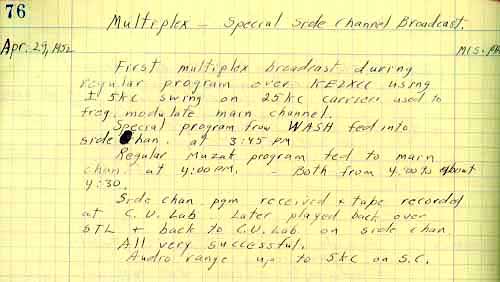 76
Multiplex – Special Side Channel Broadcast.
Apr. 29, 1952
First multiplex broadcast during
regular program over KE2XCC using
± 5KC swing on 25KC carrier used to
freq. modulate main channel.
Special program from WASH fed into
side chan. at 3:45 PM
Regular Muzak program fed to main
chan. at 4:00 PM. - Both from 4:00 to about
4:30.
Side chan. pgm received & tape recorded
at C.U. Lab. Later played back over
STL + back to C.U. Lab on side chan.
All very successful.
Audio range up to 5KC on S.C.